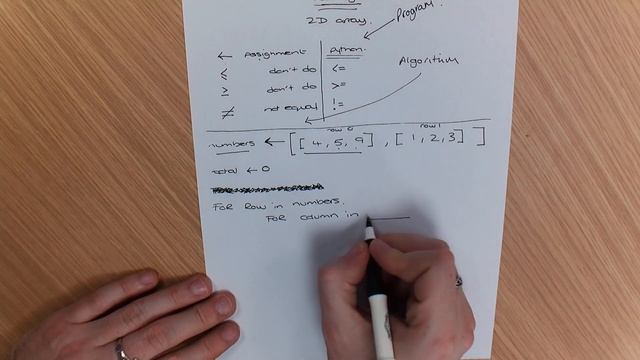 2D array.
Program.
← Assignment Python.
≤ don't do <=
≥ don't do >=
≠ not equal !=
Algorithm
row 0 row 1
numbers ← [[4, 5, 9], [1, 2, 3]]
total ← 0
FOR Row in numbers.
FOR column in